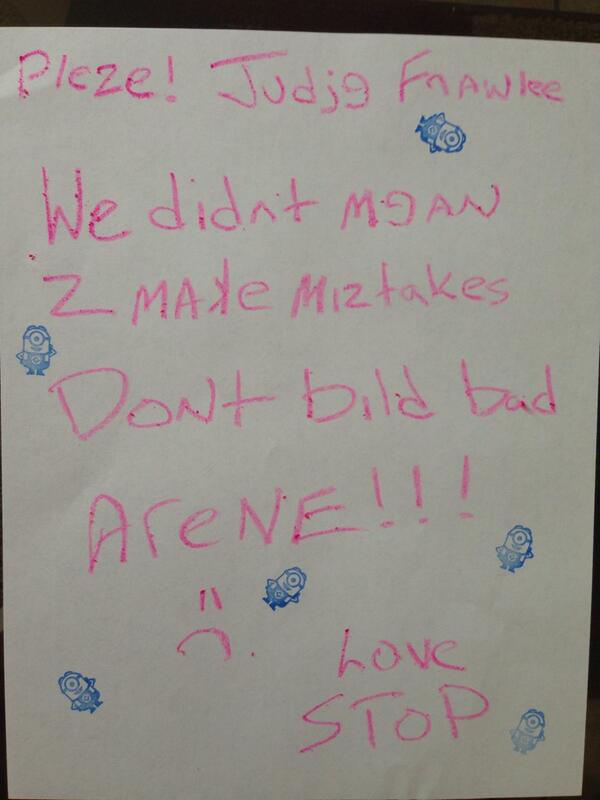 Pleze! Judjg Fnawlee
We didnt MeAN
2 MAke Miztakes
DoNt bild bad
AreNE!!!
=(.
Love
STOP